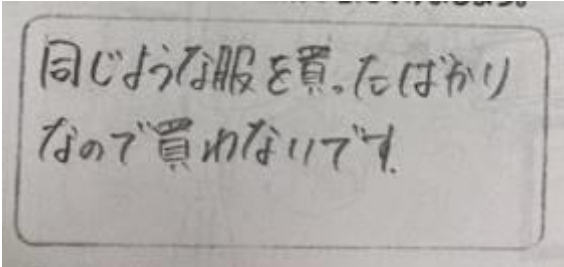 同じような服を買ったばかり
なので買わないです.